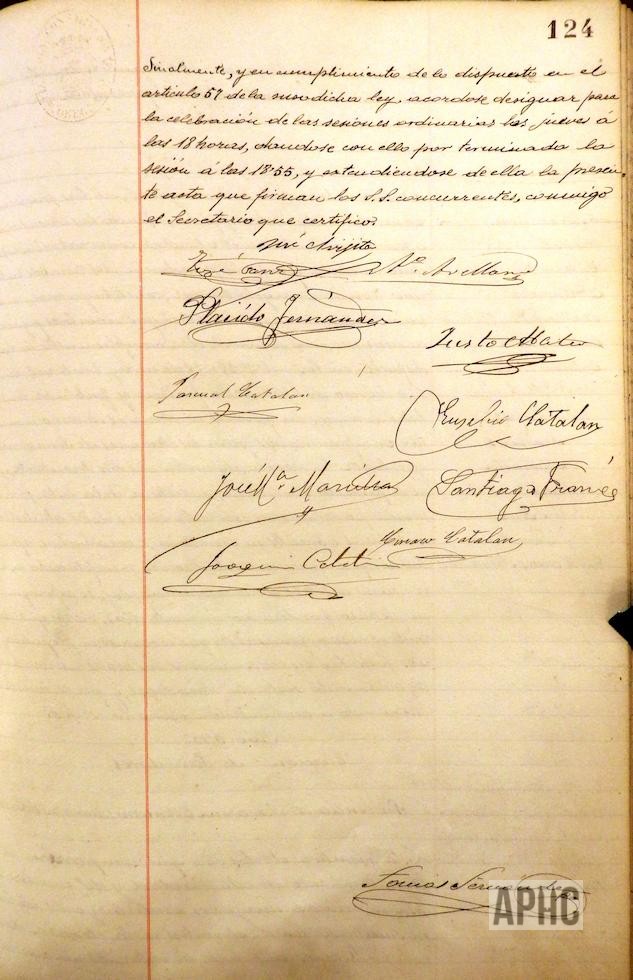 124
Finalmente, y en cumplimiento de lo dispuesto en el
artículo 57 de la susodicha ley, acordose designar para
la celebración de las sesiones ordinarias los jueves á
las 18 horas, dandose con ello por terminada la
sesión á las 18'55, y extendiendose de ella la presen-
te acta que firman los S.S. concurrentes, conmigo
el Secretario que certifico.
José
Plácido Fernández
Justo Mateo
Pascual Catalan
Eusebio Catalan
José Mª
Santiago Francé
Catalan
Joaquin
Tomás Fernández
APHC